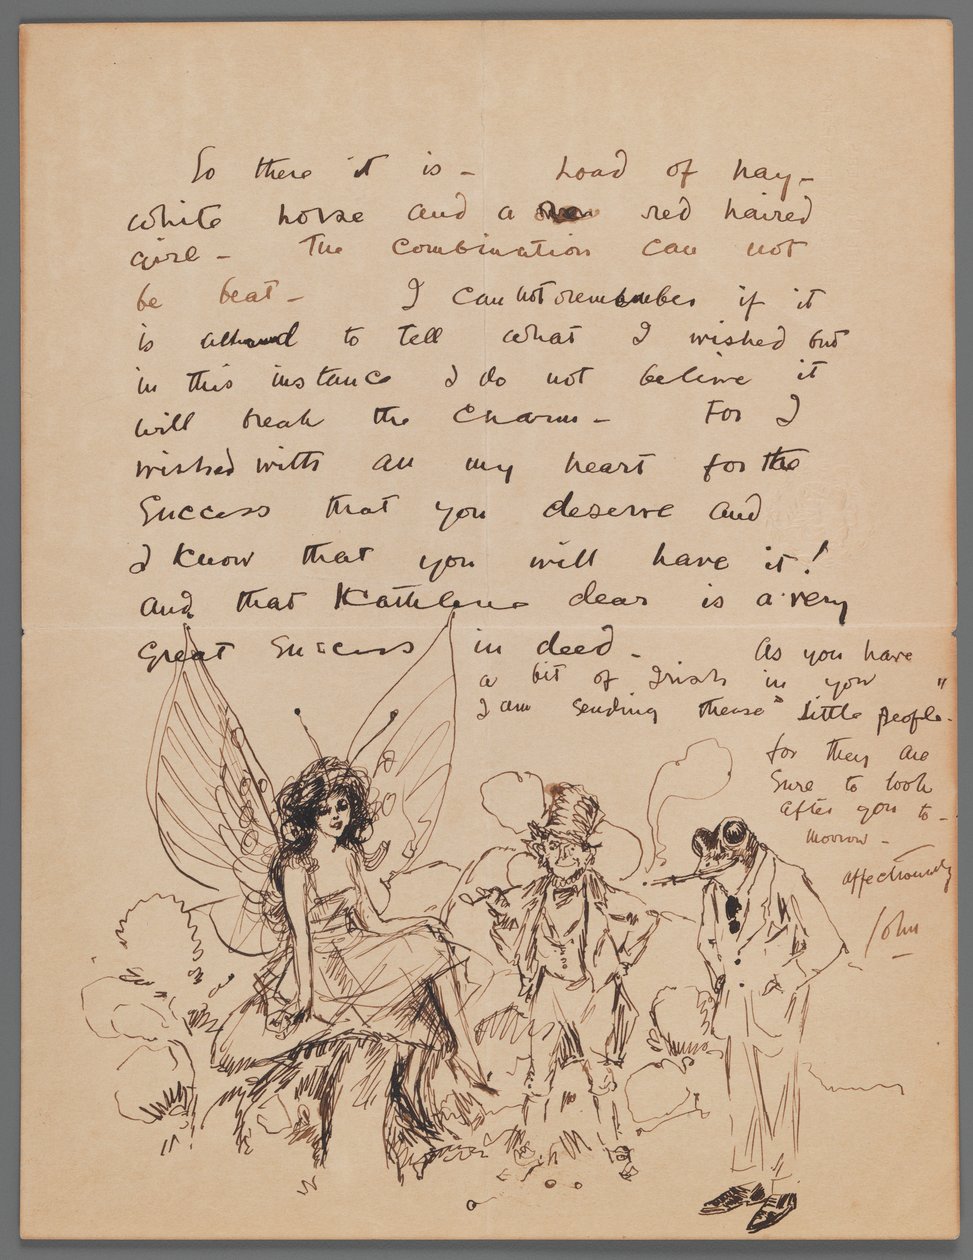 So there it is - Load of hay -
white horse and a red haired
girl - The combination can not
be beat - I can not remember if it
is allowed to tell what I wished but
in this instance I do not believe it
will break the charm - For I
wished with all my heart for the
success that you deserve and
I know that you will have it!
And that Kathlene dear is a very
great success in deed - As you have
a bit of Irish in you
I am sending these "little people"
for they are
sure to look
after you to-
morrow -
affectionately
John